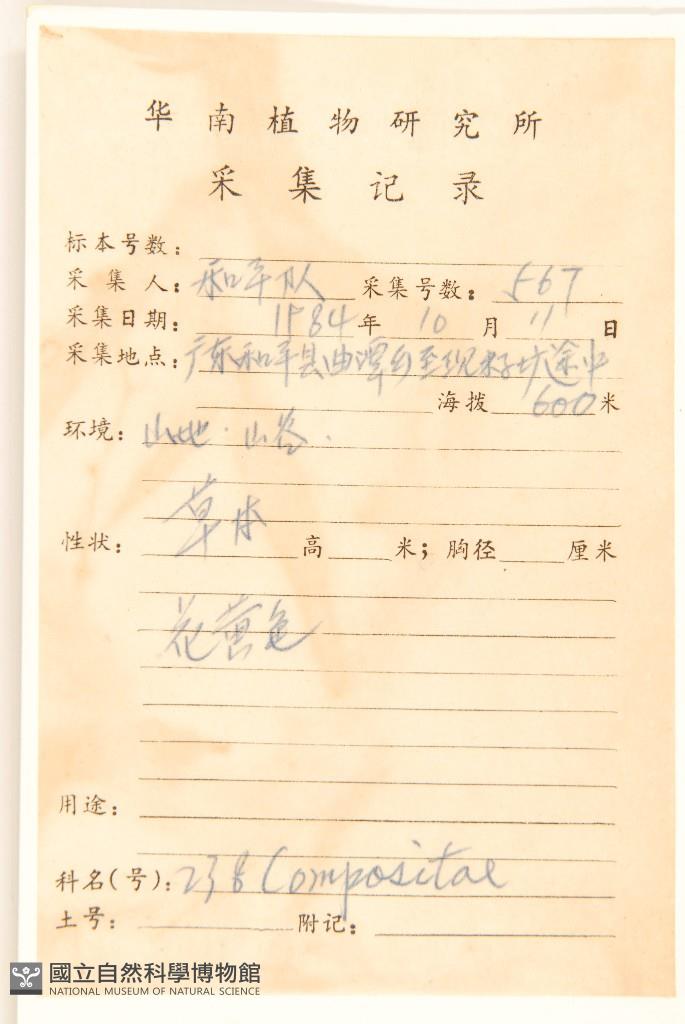 华南植物研究所
采集记录
标本号数：
采集人：和平队 采集号数：567
采集日期：1984年10月11日
采集地点：广东和平县曲潭乡至坑途中
海拨600米
环境：山地·山谷.
性状：草本 高 米；胸径 厘米
花黄色
用途：
科名(号)：238 Compositae
土号： 附记：
國立自然科學博物館
NATIONAL MUSEUM OF NATURAL SCIENCE